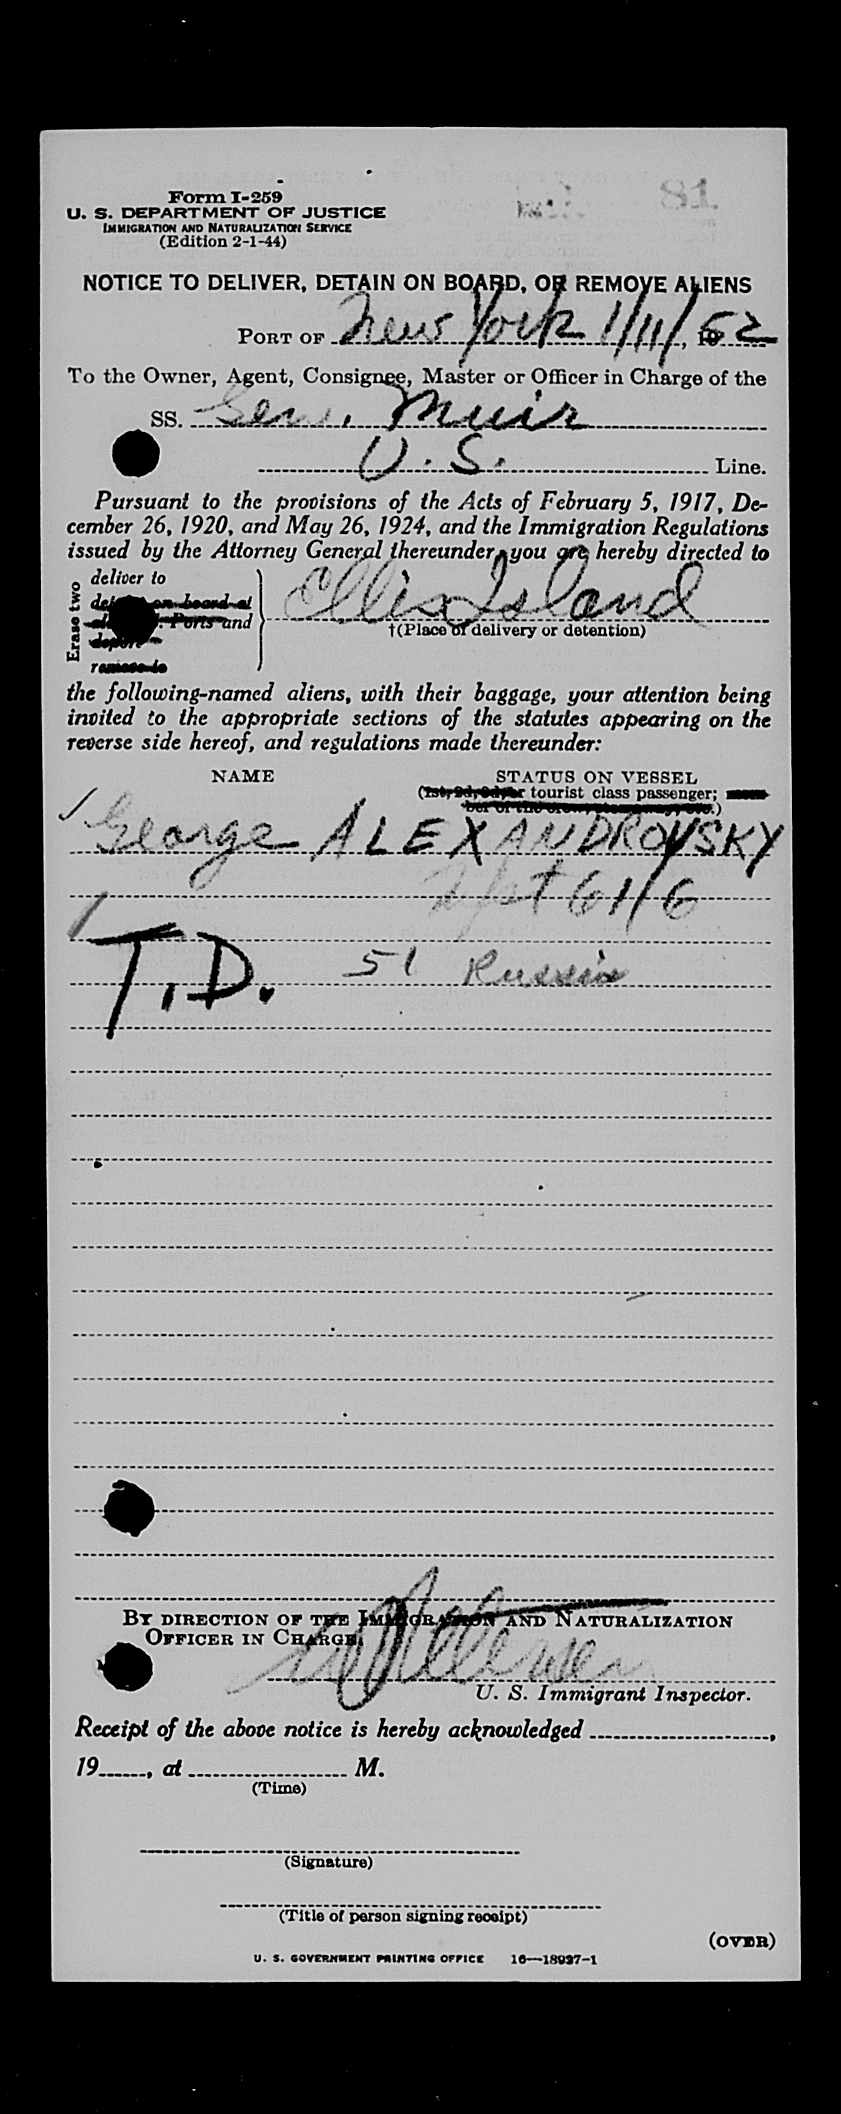 81
Form I-259
U. S. DEPARTMENT OF JUSTICE
IMMIGRATION AND NATURALIZATION SERVICE
(Edition 2-1-44)
NOTICE TO DELIVER, DETAIN ON BOARD, OR REMOVE ALIENS
PORT OF New York 1/11/, 1952
To the Owner, Agent, Consignee, Master or Officer in Charge of the
SS. Gen. Muir
U.S. Line.
Pursuant to the provisions of the Acts of February 5, 1917, De-
cember 26, 1920, and May 26, 1924, and the Immigration Regulations
issued by the Attorney General thereunder, you are hereby directed to
Erase two
deliver to
on board at
Ports and
remove to
Ellis Island
†(Place of delivery or detention)
the following-named aliens, with their baggage, your attention being
invited to the appropriate sections of the statutes appearing on the
reverse side hereof, and regulations made thereunder:
NAME STATUS ON VESSEL
(1st, 2d, 3d, or tourist class passenger;
George ALEXANDROVSKY
61/6
T.D. 51 Russia
BY DIRECTION OF THE IMMIGRATION AND NATURALIZATION
OFFICER IN CHARGE,
U. S. Immigrant Inspector.
Receipt of the above notice is hereby acknowledged ,
19 , at M.
(Time)
(Signature)
(Title of person signing receipt)
(OVER)
U. S. GOVERNMENT PRINTING OFFICE 16—18937-1